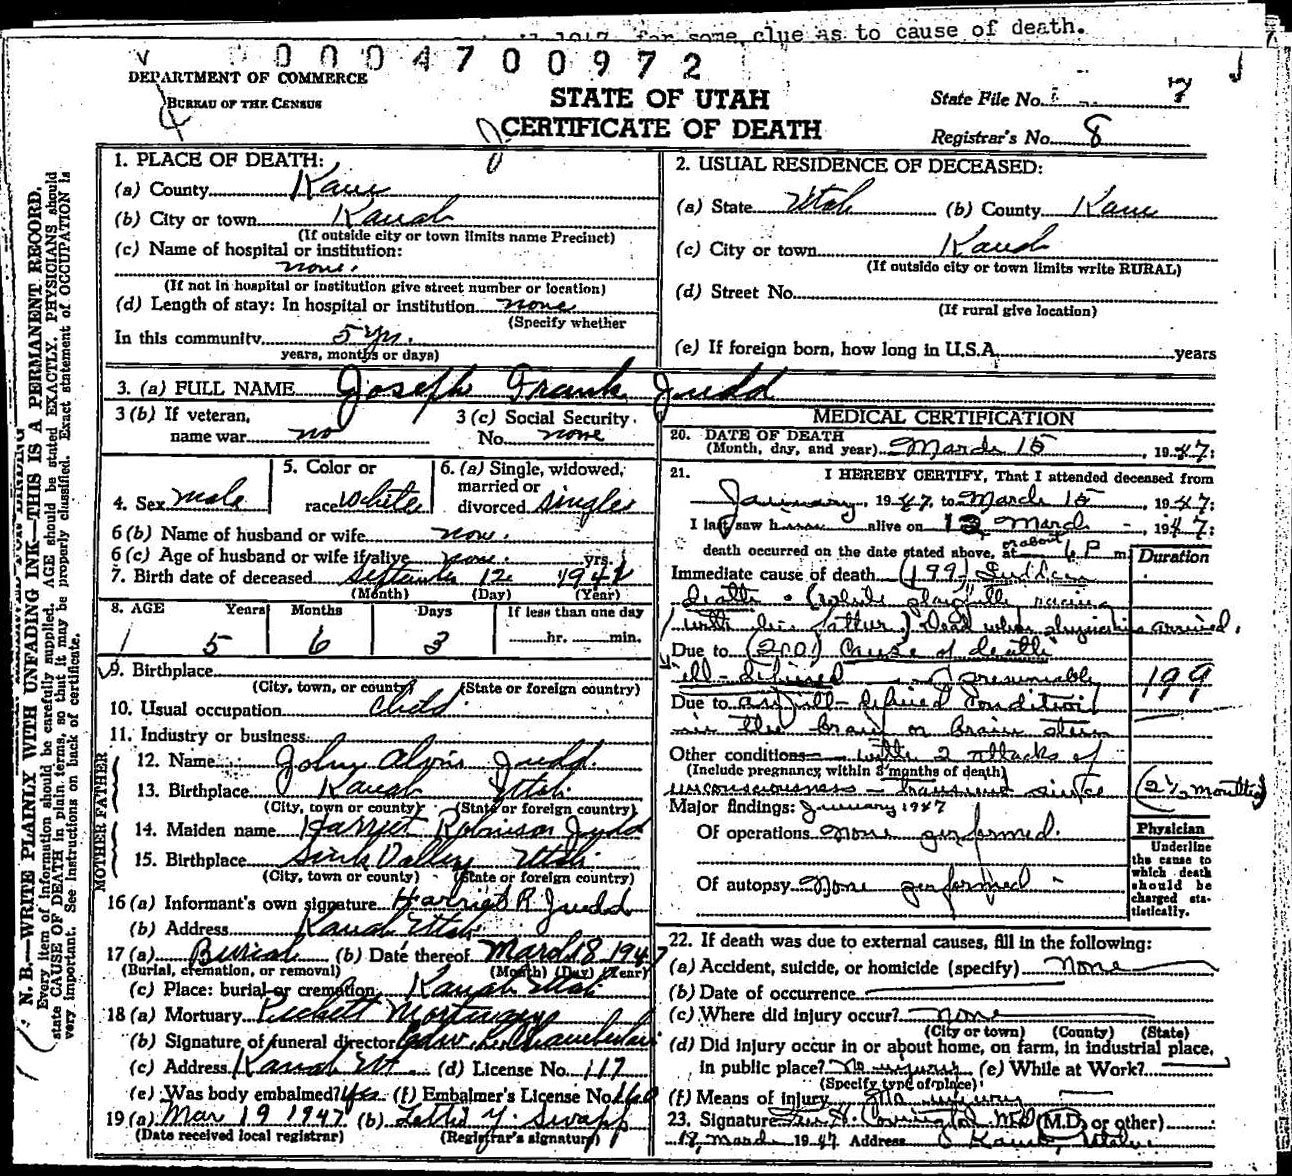 1947, for some clue as to cause of death.
0004700972
DEPARTMENT OF COMMERCE
BUREAU OF THE CENSUS
STATE OF UTAH
CERTIFICATE OF DEATH
State File No. 7
Registrar's No. 8
N. B.—WRITE PLAINLY WITH UNFADING INK—THIS IS A PERMANENT RECORD.
Every item of information should be carefully supplied. AGE should be stated EXACTLY. PHYSICIANS should
state CAUSE OF DEATH in plain terms, so that it may be properly classified. Exact statement of OCCUPATION is
very important. See instructions on back of certificate.
1. PLACE OF DEATH:
(a) County Kane
(b) City or town Kanab
(If outside city or town limits name Precinct)
(c) Name of hospital or institution:
none.
(If not in hospital or institution give street number or location)
(d) Length of stay: In hospital or institution none
(Specify whether
In this community 5 yr.
years, months or days)
2. USUAL RESIDENCE OF DECEASED:
(a) State Utah (b) County Kane
(c) City or town Kanab
(If outside city or town limits write RURAL)
(d) Street No.
(If rural give location)
(e) If foreign born, how long in U.S.A. years
3. (a) FULL NAME Joseph Frank Judd
3 (b) If veteran,
name war no
3 (c) Social Security
No. none
4. Sex male
5. Color or
race White
6. (a) Single, widowed,
married or
divorced single
6 (b) Name of husband or wife none.
6 (c) Age of husband or wife if alive none. yrs.
7. Birth date of deceased September 12 1941
(Month) (Day) (Year)
8. AGE Years Months Days If less than one day
5 6 3 hr. min.
9. Birthplace
(City, town, or county) (State or foreign country)
10. Usual occupation child
11. Industry or business
FATHER
12. Name John Alvin Judd.
13. Birthplace Kanab Utah.
(City, town or county) (State or foreign country)
MOTHER
14. Maiden name Harriet Robinson Judd
15. Birthplace Sink Valley Utah.
(City, town or county) (State or foreign country)
16 (a) Informant's own signature Harriet R Judd
(b) Address Kanab Utah.
17 (a) Burial (b) Date thereof March 18 1947
(Burial, cremation, or removal) (Month) (Day) (Year)
(c) Place: burial or cremation Kanab Utah
18 (a) Mortuary Mortuary
(b) Signature of funeral director Chamberlain
(c) Address Kanab Ut (d) License No. 117
(e) Was body embalmed? Yes (f) Embalmer's License No. 160
19 (a) Mar 19 1947 (b) Y. Swapp
(Date received local registrar) (Registrar's signature)
MEDICAL CERTIFICATION
20. DATE OF DEATH
(Month, day, and year) March 15, 1947;
21. I HEREBY CERTIFY, That I attended deceased from
January, 1947, to March 15, 1947;
I last saw h alive on 12 March, 1947;
death occurred on the date stated above, or about at 6 P m.
Duration
Immediate cause of death (199) Sudden
death. (while playfully racing
with his father.) Dead when physician arrived.
Due to (200) Cause of death
ill-defined presumably
199
Due to an ill-defined condition
in the brain or brain stem
Other conditions with 2 attacks of
(Include pregnancy within 3 months of death)
unconsciousness - transient since (2½ months)
Major findings: January 1947
Of operations None performed.
Of autopsy None performed -
Physician
Underline
the cause to
which death
should be
charged sta-
tistically.
22. If death was due to external causes, fill in the following:
(a) Accident, suicide, or homicide (specify) none
(b) Date of occurrence
(c) Where did injury occur? none
(City or town) (County) (State)
(d) Did injury occur in or about home, on farm, in industrial place,
in public place? No injury (e) While at Work?
(Specify type of place)
(f) Means of injury No injury
23. Signature Covington MD (M.D. or other)
18 March 1947 Address Kanab, Utah.